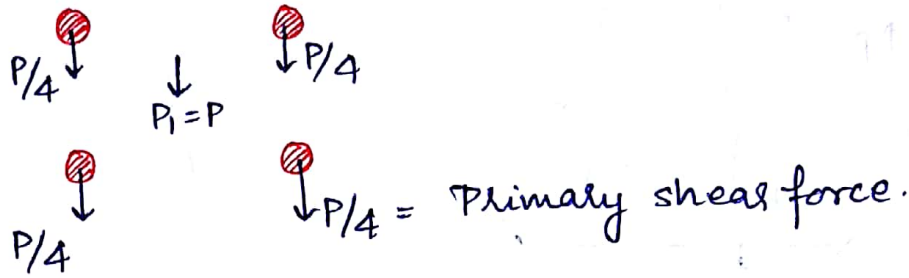 P/4
P/4
P₁ = P
P/4
P/4 = Primary shear force.